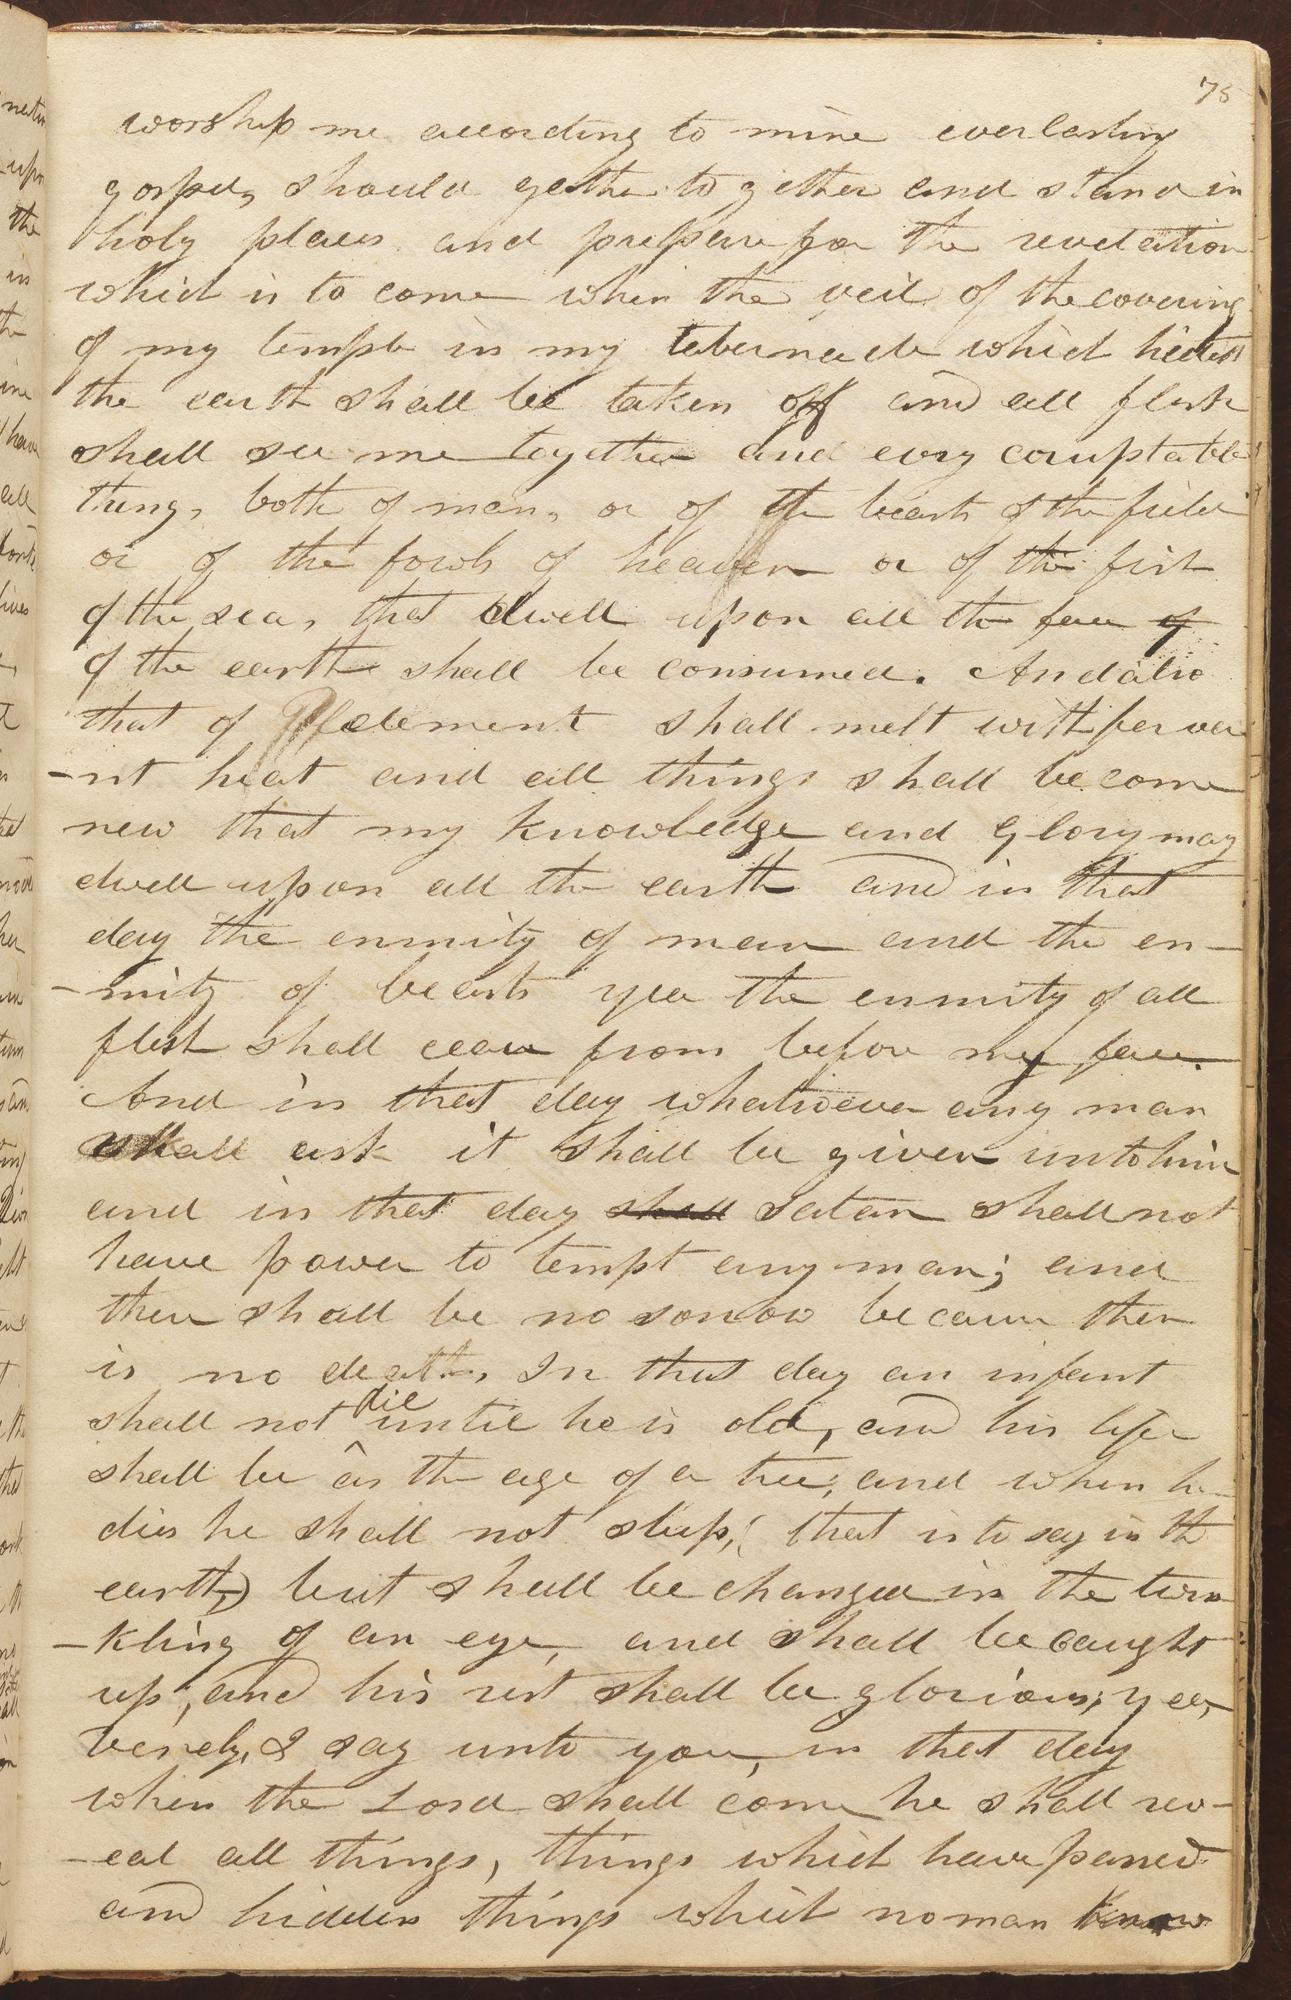 75
worship me according to mine everlasting
gospel, should gather together and stand in
holy places and prepare for the revelation
which is to come when the veil of the covering
of my temple in my tabernacle which hideth
the earth shall be taken off and all flesh
shall see me together and evry corruptable
thing, both of man, or of the beasts of the field
or of the fowls of heaven or of the fish
of the sea, that dwell upon all the face of
of the earth shall be consumed. And also
that of element shall melt with ferve
-nt heat and all things shall become
new that my knowledge and Glory may
dwell upon all the earth and in that
day the enmity of man and the en-
-mity of beasts yea the enmity of all
flesh shall cease from before my face.
And in that day whatsoever any man
shall ask it shall be given unto him
and in that day shall Satan shall not
have power to tempt any man; and
there shall be no sorrow because there
is no death, In that day an infant
die
shall not until he is old, and his life
shall be as the age of a tree; and when he
dies he shall not sleep, (that is to say in the
earth,) but shall be changed in the twin
-kling of an eye, and shall be caught
up, and his rest shall be glorious; yea,
verely, I say unto you, in that day
when the Lord shall come he shall rev-
-eal all things, things which have passed
and hidden things which no man know